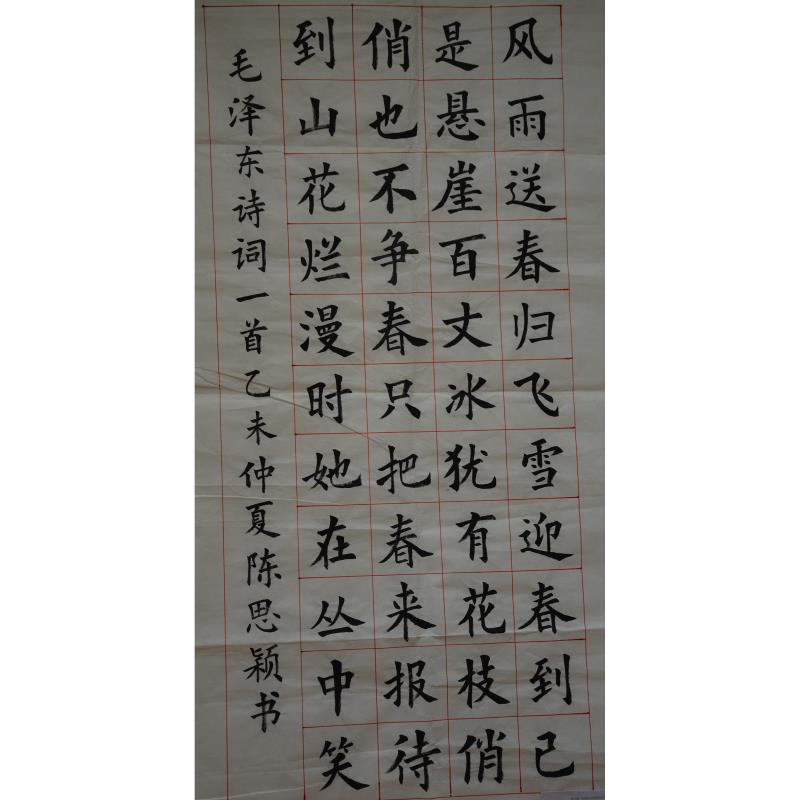 风雨送春归飞雪迎春到已
是悬崖百丈冰犹有花枝俏
俏也不争春只把春来报待
到山花烂漫时她在丛中笑
毛泽东诗词一首乙未仲夏陈思颖书